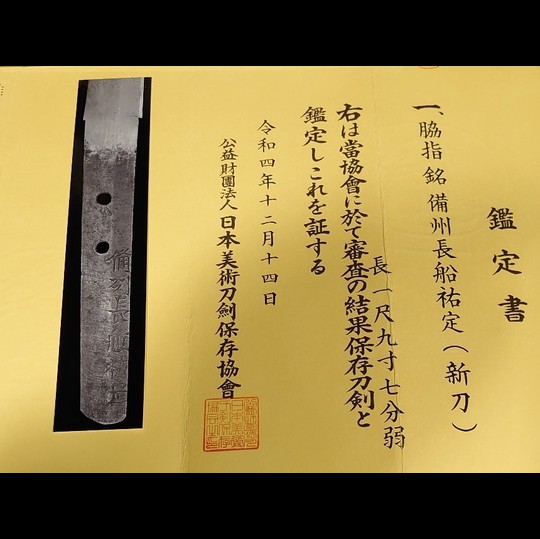 鑑定書
一、脇指 銘 備州長船祐定(新刀)
長一尺九寸七分弱
右は當協會に於て審査の結果保存刀剣と
鑑定しこれを証する
令和四年十二月十四日
公益財團法人 日本美術刀劍保存協會
備州長船祐定